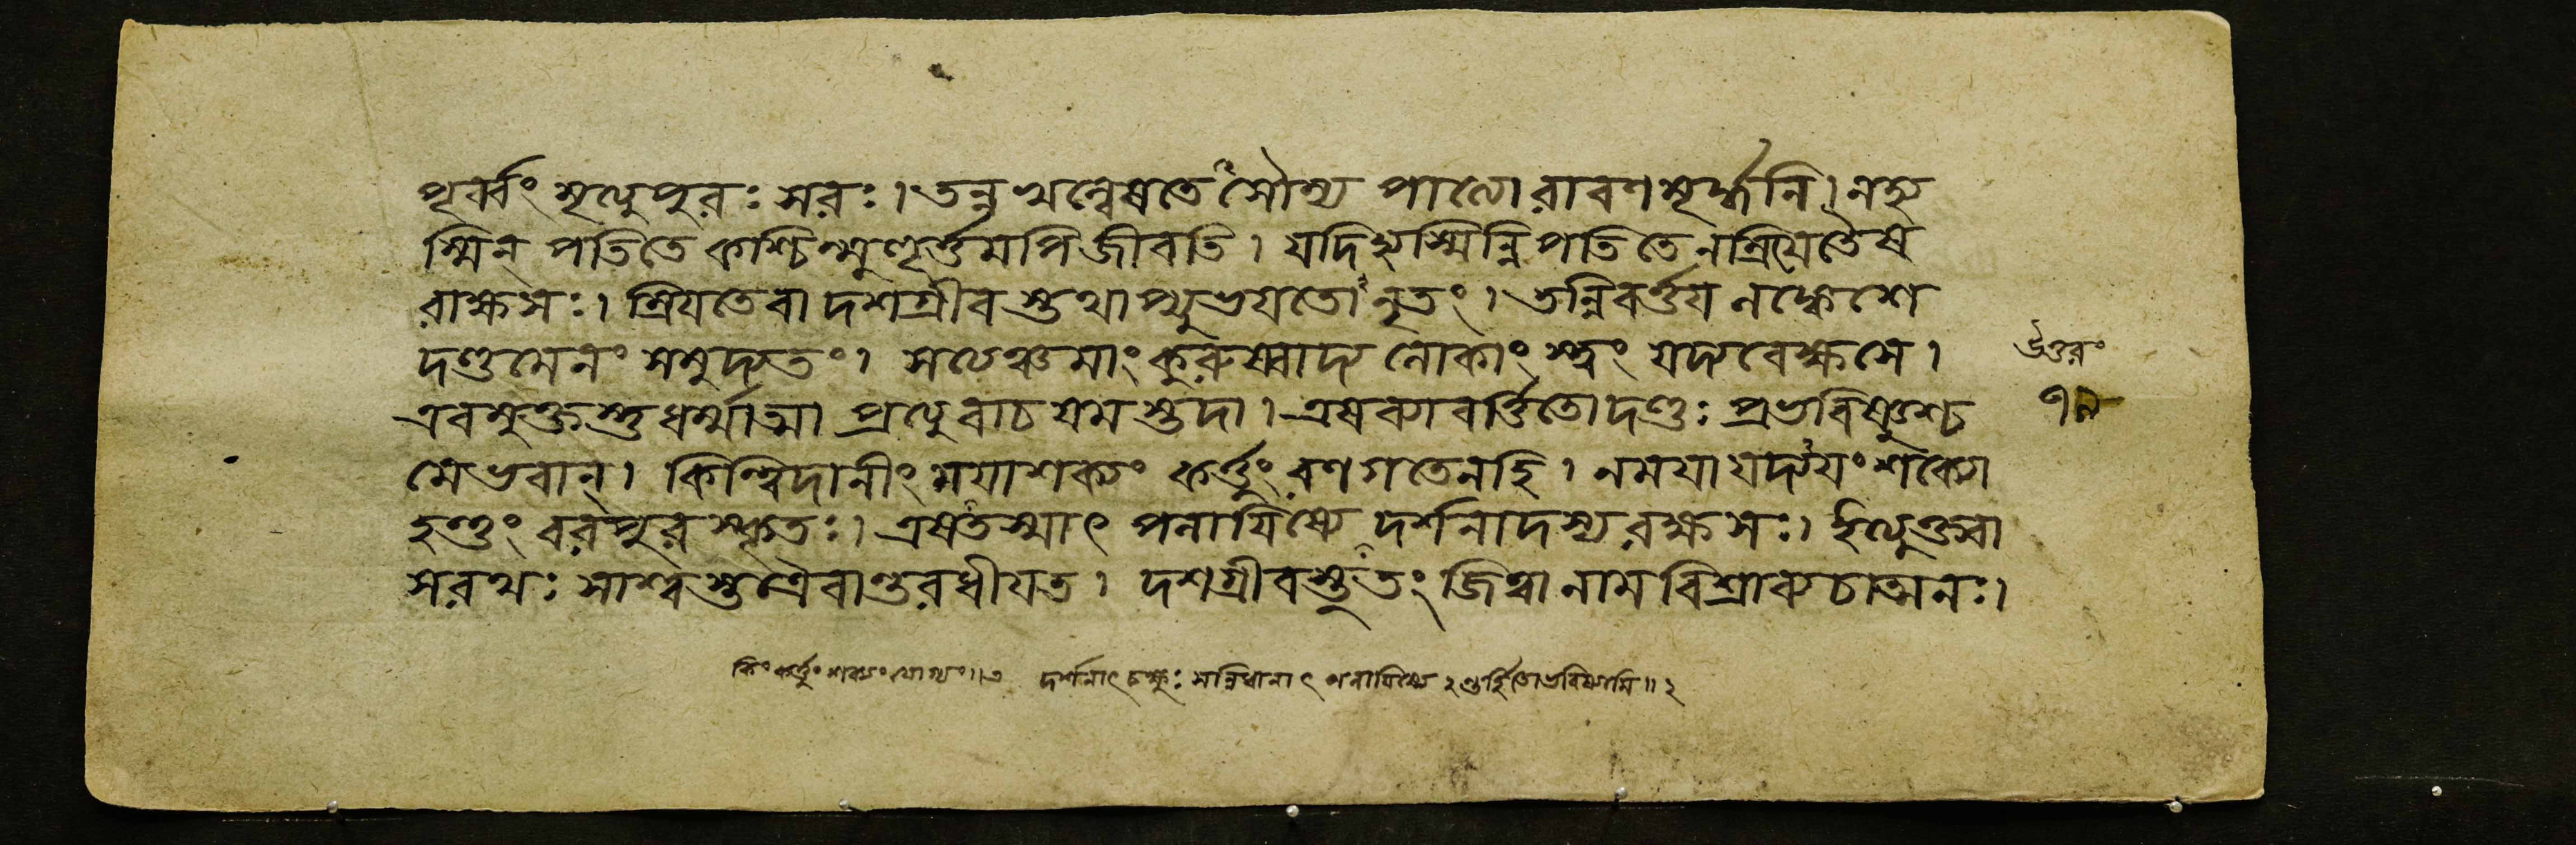 পূর্ব্বং মৃত্যুপুরঃসরঃ। তন্নখল্বেষতে সৌম্য পাত্যো রাবণমূর্দ্ধনি। নহ্য
স্মিন্ পতিতে কশ্চিন্মুহূর্ত্তমপিজীবতি। যদিহ্যস্মিন্নিপতিতে নম্রিয়েতৈষ
রাক্ষসঃ। ম্রিয়তেবা দশগ্রীবস্তথাপ্যুভয়তো নৃতং। তন্নিবর্ত্তয় লঙ্কেশে
দণ্ডমেনং সমুদ্যতং। সত্যঞ্চমাং কুরুষ্বাদ্য লোকাংস্ত্বং যদ্যবেক্ষসে।
এবমুক্তস্তুধর্ম্মাত্মা প্রত্যুবাচ যমস্তদা। এষব্যাবর্ত্তিতোদণ্ডঃ প্রভবিষ্ণুশ্চ
মেভবান্। কিন্ত্বিদানীং ময়াশক্যং কর্ত্তুং রণগতেনহি। নময়াযদ্যয়ং শক্যো
হন্তুং বরপুরস্কৃতঃ। এষতস্মাৎ পলায়িষ্যে দর্শনাদস্য রক্ষসঃ। ইত্যুক্ত্বা
সরথঃ সাশ্বস্তত্রৈবান্তরধীয়ত। দশগ্রীবস্তুতং জিত্বা নাম বিশ্রাব্যচাত্মনঃ।
উত্তরং
কিংকর্ত্তুংশক্যংযোগ্যং॥৩ দর্শনাৎ চক্ষুঃসন্নিধানাৎ পলায়িষ্যে অন্তর্হিতোভবিষ্যামি॥২